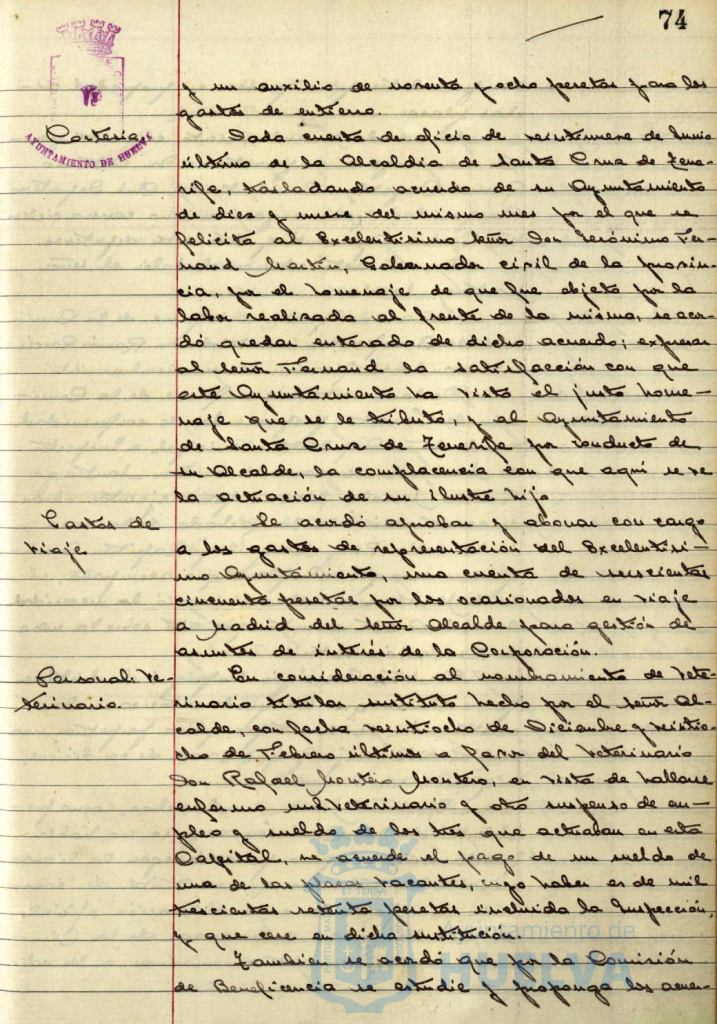 74
y un auxilio de noventa y ocho pesetas para los
gastos de entierro.
Cortesia.
AYUNTAMIENTO DE HUELVA
Dada cuenta de oficio de veintinueve de Junio
último de la Alcaldia de Santa Cruz de Tene-
rife, trasladando acuerdo de su Ayuntamiento
de diez y nueve del mismo mes por el que se
felicita al Excelentisimo Señor Don Jerónimo Fer-
naud Martín, Gobernador civil de la provin-
cia, por el homenaje de que fue objeto por la
labor realizada al frente de la misma, se acor-
dó quedar enterado de dicho acuerdo; expresar
al Señor Fernaud la satisfacción con que
este Ayuntamiento ha visto el justo home-
naje que se le tributó, y al Ayuntamiento
de Santa Cruz de Tenerife por conducto de
su Alcalde, la complacencia con que aqui se ve
la actuación de su ilustre hijo
Gastos de
viaje
Se acordó aprobar y abonar con cargo
a los gastos de representación del Excelentisi-
mo Ayuntamiento, una cuenta de seiscientas
cincuenta pesetas por los ocasionados en viaje
a Madrid del Señor Alcalde para gestión de
asuntos de interés de la Corporación.
Personal: Ve-
terinario.
En consideración al nombramiento de Vete-
rinario titular sustituto hecho por el Señor Al-
calde, con fecha veintiocho de Diciembre y veintio-
cho de Febrero últimos a favor del Veterinario
Don Rafael Montero Montero, en vista de hallarse
enfermo un Veterinario y otro suspenso de em-
pleo y sueldo de los tres que actuaban en esta
Capital, se acuerde el pago de un sueldo de
una de las plazas vacantes, cuyo haber es de mil
trescientas setenta pesetas incluida la Inspección,
y que cese en dicha sustitución.
Tambien se acordó que por la Comisión
de Beneficencia se estudie y proponga los acuer-
Ayuntamiento de
HUELVA